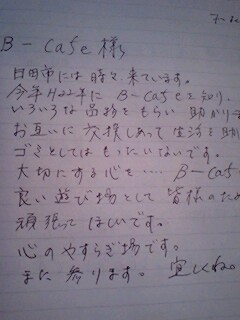 B-Cafe 様
日田市には時々、来ています。
今年 H22年に B-Cafeを知り、
いろいろな品物をもらい 助かりま
お互いに交換しあって 生活を助
ゴミとしてはもったいないです。
大切にする心を‥‥ B-Caf
良い遊び場として 皆様のため
頑張って ほしいです。
心のやすらぎ場です。
また 参ります。 宜しくね。